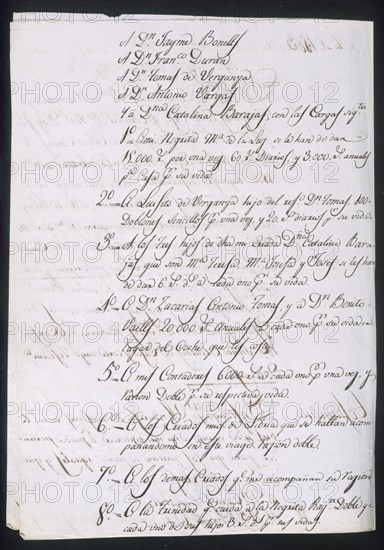 A Dn. Jayme Bonells
A Dn. Franco. Duran
A Dn. Tomas de Verganya
A Dn. Antonio Vargas
Y a Dna. Catalina Barajas, con las Cargas sigtes
1a. A mi Negrita Ma. de la Luz se le han de dar
15000 rs. por una vez, 60 rs. Diarios, y 3000 rs. anuales
pa. Casa pr. su vida.
2a. A Luisito de Verganya hijo del refo. Dn. Tomas 100
Doblones Sencillos pr. una vez, y 20 rs. diarios pr. su vida.
3a. A los tres hijos de dha mi Criada Dna. Catalina Bara-
jas que son Ma. Teresa, Ma. Josefa y Josef se les han
de dar 6 rs. ds. a cada uno pr. su vida.
4a. A Dn. Zacarias Antonio Tomas, y a Dn. Benito
20.000 rs. Anuales a cada uno pr. su vida en-
cargandoles el Coche que les cofie.
5a. A mis Contadores 6000 rs. a cada uno pr. una vez, y
racion Doble pr. su respectiva vida.
6a. A los Criados mios de Libria que se hallan acom-
pañandome en este viage Razon doble.
7a. A los demas Criados qe. me acompañan su Racion
8a. A la Trinidad qe. cuida a la Negrita Raon. Doble y
a cada uno de sus hijos 3 rs. ds. pr. sus vidas.
PHOTO12